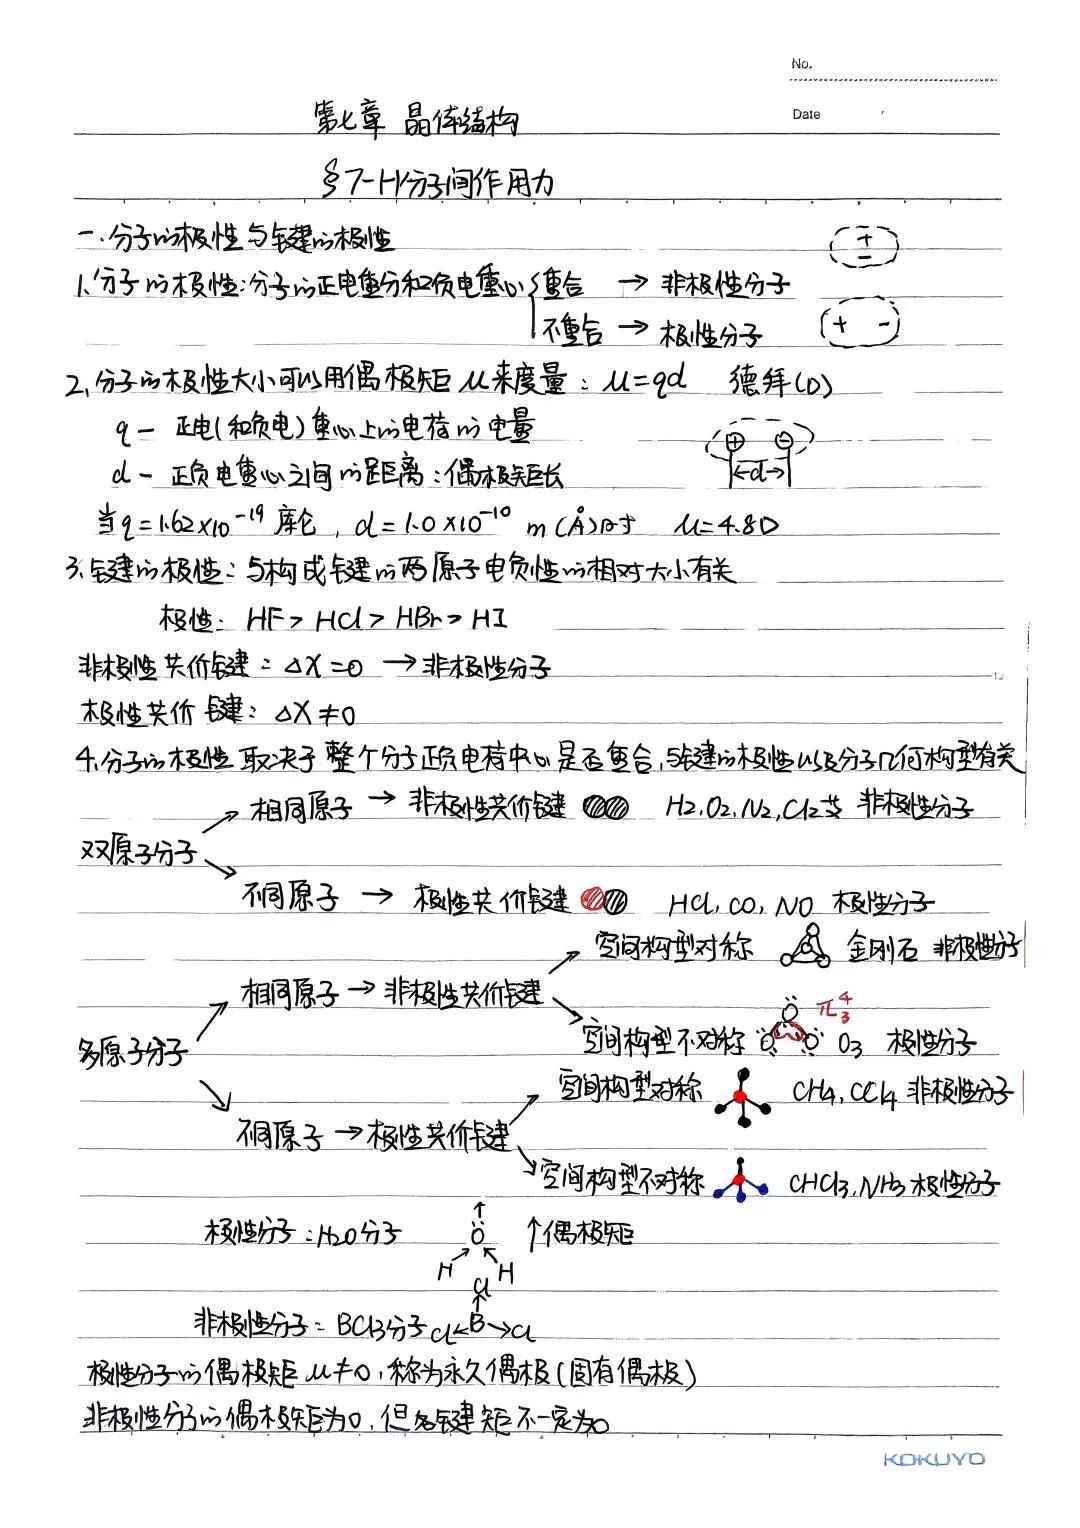 No.
Date
第七章 晶体结构
§7-1-1分子间作用力
一.分子的极性与键的极性
1.分子的极性:分子的正电重分和负电重心 重合 → 非极性分子
不重合 → 极性分子
2.分子的极性大小可以用偶极矩μ来度量: μ=qd 德拜(D)
q - 正电(和负电)重心上的电荷的电量
d - 正负电重心之间的距离:偶极矩长
←d→
当q=1.62×10⁻¹⁹库仑, d=1.0×10⁻¹⁰m(Å)时 μ=4.8D
3.键的极性:与构成键的两原子电负性的相对大小有关
极性: HF>HCl>HBr>HI
非极性共价键: ΔX=0 → 非极性分子
极性共价键: ΔX≠0
4.分子的极性取决于整个分子正负电荷中心是否重合,与键的极性以及分子几何构型有关
相同原子 → 非极性共价键 H2,O2,N2,Cl2等 非极性分子
双原子分子
不同原子 → 极性共价键 HCl,CO,NO 极性分子
空间构型对称 金刚石 非极性分子
相同原子 → 非极性共价键
空间构型不对称 O O O π₃⁴ O3 极性分子
多原子分子
空间构型对称 CH4,CCl4 非极性分子
不同原子 → 极性共价键
空间构型不对称 CHCl3,NH3 极性分子
极性分子:H2O分子 O ↑偶极矩
H H
Cl
非极性分子: BCl3分子 Cl←B→Cl
极性分子的偶极矩μ≠0,称为永久偶极(固有偶极)
非极性分子的偶极矩为0,但各键矩不一定为0
KOKUYO